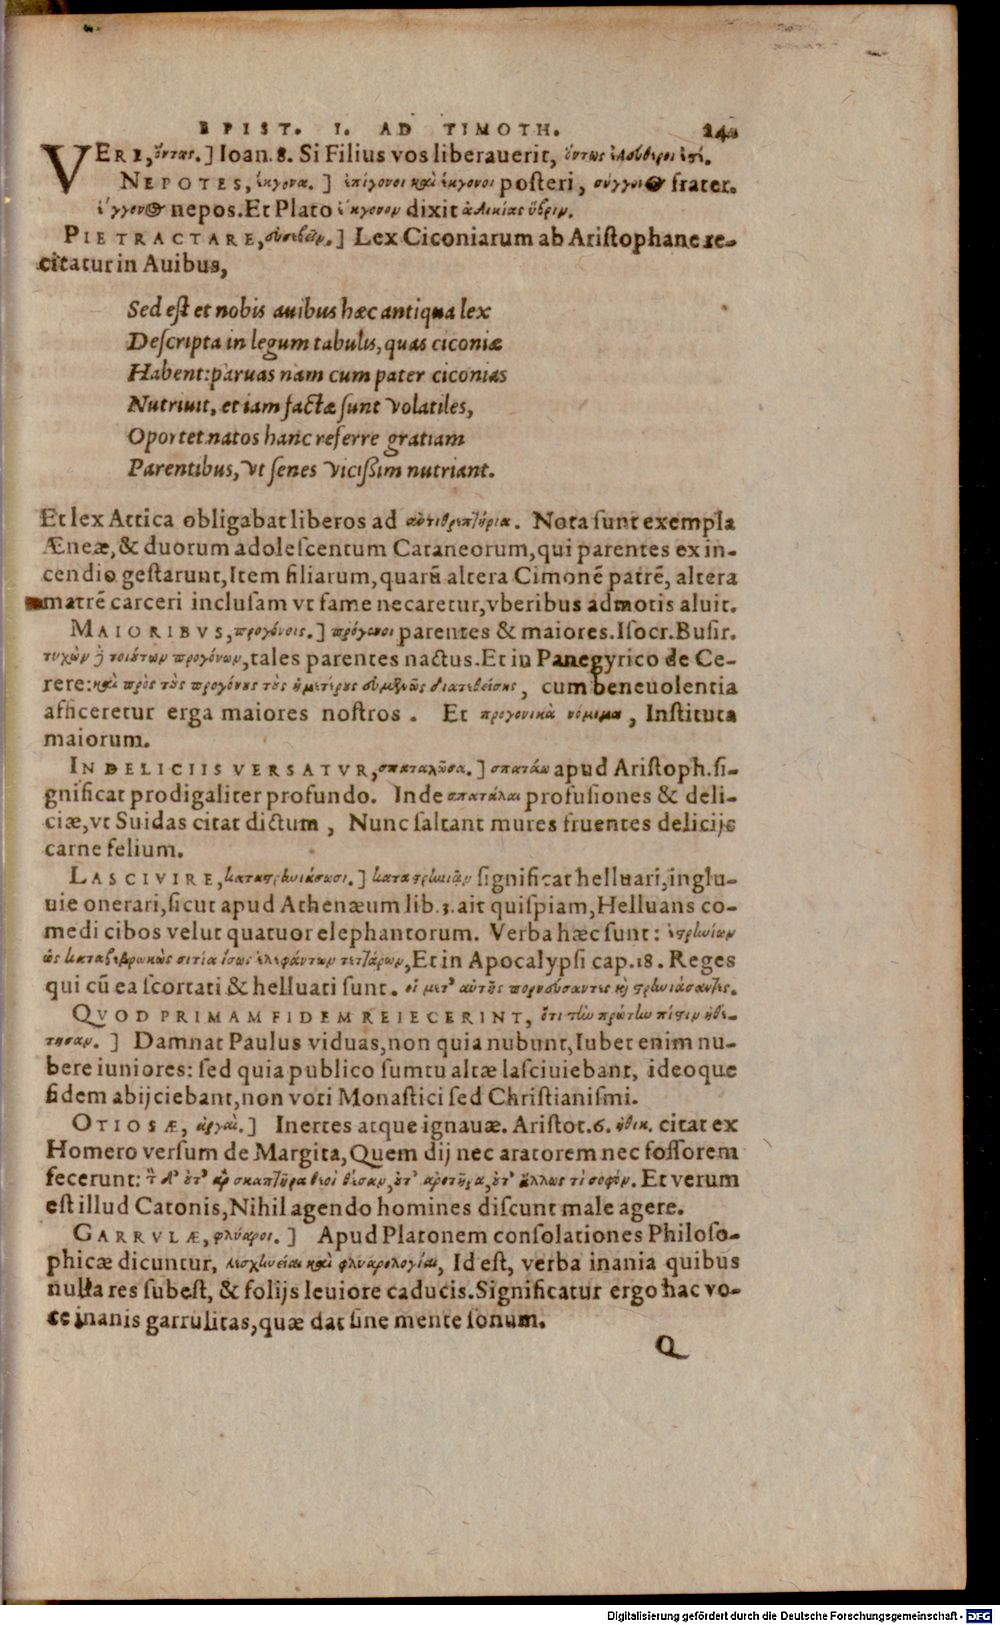 EPIST. I. AD TIMOTH. 241
VERE, ὄντως.] Ioan. 8. Si Filius vos liberauerit, ὄντως ἐλεύθεροι ἐστέ.
NEPOTES, ἔκγονα.] ἐπίγονοι καὶ ἔκγονοι posteri, σύγγονος frater.
ἔγγονος nepos. Et Plato ἔκγονον dixit ἀδικίας ὕβριν.
PIE TRACTARE, εὐσεβεῖν.] Lex Ciconiarum ab Aristophane re-
citatur in Auibus,
Sed est et nobis auibus hæc antiqua lex
Descripta in legum tabulis, quas ciconiæ
Habent: paruas nam cum pater ciconias
Nutriuit, et iam factæ sunt volatiles,
Oportet natos hanc referre gratiam
Parentibus, vt senes vicißim nutriant.
Et lex Attica obligabat liberos ad ἀντιθρεπτήρια. Nota sunt exempla
Æneæ, & duorum adolescentum Cataneorum, qui parentes ex in-
cendio gestarunt, Item filiarum, quarū altera Cimonē patrē, altera
matrē carceri inclusam vt fame necaretur, vberibus admotis aluit.
MAIORIBVS, προγόνοις.] πρόγονοι parentes & maiores. Isocr. Busir.
τυχὼν ἢ τοιούτων προγόνων, tales parentes nactus. Et in Panegyrico de Ce-
rere: καὶ πρὸς τοὺς προγόνους τοὺς ἡμετέρους εὐμενῶς διατεθείσης, cum beneuolentia
afficeretur erga maiores nostros. Et προγονικὰ νόμιμα, Instituta
maiorum.
IN DELICIIS VERSATVR, σπαταλῶσα.] σπατάω apud Aristoph. si-
gnificat prodigaliter profundo. Inde σπατάλαι profusiones & deli-
ciæ, vt Suidas citat dictum, Nunc saltant mures fruentes delicijs
carne felium.
LASCIVIRE, καταστρηνιάσωσι.] καταστρηνιᾷν significat helluari, inglu-
uie onerari, sicut apud Athenæum lib. 3. ait quispiam, Helluans co-
medi cibos velut quatuor elephantorum. Verba hæc sunt: ἐστρηνίων
ὡς καταβεβρωκὼς σιτία ἴσως ἐλεφάντων τεττάρων, Et in Apocalypsi cap. 18. Reges
qui cū ea scortati & helluati sunt. οἱ μετ' αὐτῆς πορνεύσαντες καὶ στρηνιάσαντες.
QVOD PRIMAM FIDEM REIECERINT, ὅτι τὴν πρώτην πίστιν ἠθέ-
τησαν.] Damnat Paulus viduas, non quia nubunt, Iubet enim nu-
bere iuniores: sed quia publico sumtu altæ lasciuiebant, ideoque
fidem abijciebant, non voti Monastici sed Christianismi.
OTIOSÆ, ἀργαὶ.] Inertes atque ignauæ. Aristot. 6. ἠθικ. citat ex
Homero versum de Margita, Quem dij nec aratorem nec fossorem
fecerunt: τὸν δ' οὔτ' ἂρ σκαπτῆρα θεοὶ θέσαν, οὔτ' ἀροτῆρα, οὔτ' ἄλλως τὶ σοφόν. Et verum
est illud Catonis, Nihil agendo homines discunt male agere.
GARRVLÆ, φλύαροι.] Apud Platonem consolationes Philoso-
phicæ dicuntur, λεσχηνεῖαι καὶ φλυαρολογίαι, Id est, verba inania quibus
nulla res subest, & folijs leuiore caducis. Significatur ergo hac vo-
ce inanis garrulitas, quæ dat sine mente sonum.
Q
Digitalisierung gefördert durch die Deutsche Forschungsgemeinschaft - DFG